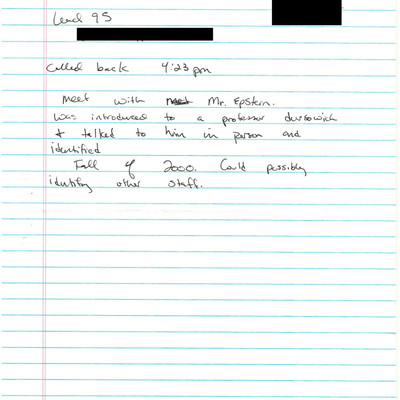 Lead 95
Called back 4:23 pm
Meet with Mr. Epstein.
was introduced to a professor
& talked to him in person and
identified
Fall of 2000. Could possibly
identify other staff.